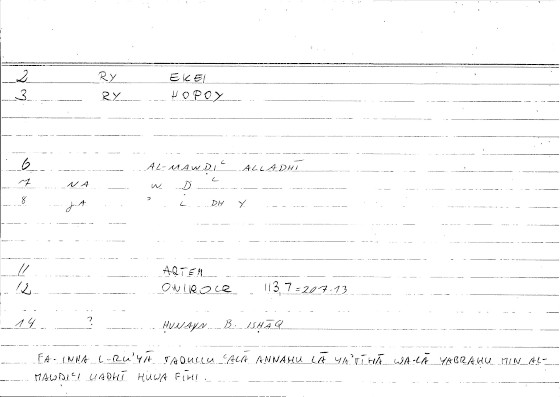 2 RY EKEI
3 RY HOPOY
6 AL-MAWḌIʿ ALLADHĪ
7 NA W Ḍ ʿ
8 JA ʾ L DH Y
11 ARTEM
12 ONIROCR 113,7 = 207.13
14 ? ḤUNAYN B. ISḤĀQ
FA-INNA L-RUʾYĀ TADULLU ʿALĀ ANNAHU LĀ YAʾTĪHĀ WA-LĀ YABRAḤU MIN AL-
MAWḌIʿI LLADHĪ HUWA FĪHI.